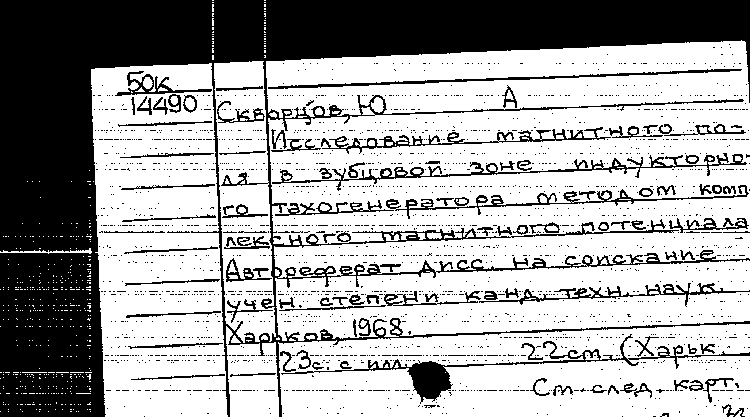 50к
14490 Скварцов, Ю А
Исследование магнитного по-
ля в зубцовой зоне индукторно-
го тахогенератора методом комп-
лексного магнитного потенциала
Автореферат дисс. на соискание
учен. степени канд. техн. наук.
Харьков, 1968.
23с. с илл. 22см. (Харьк.
См. след. карт.